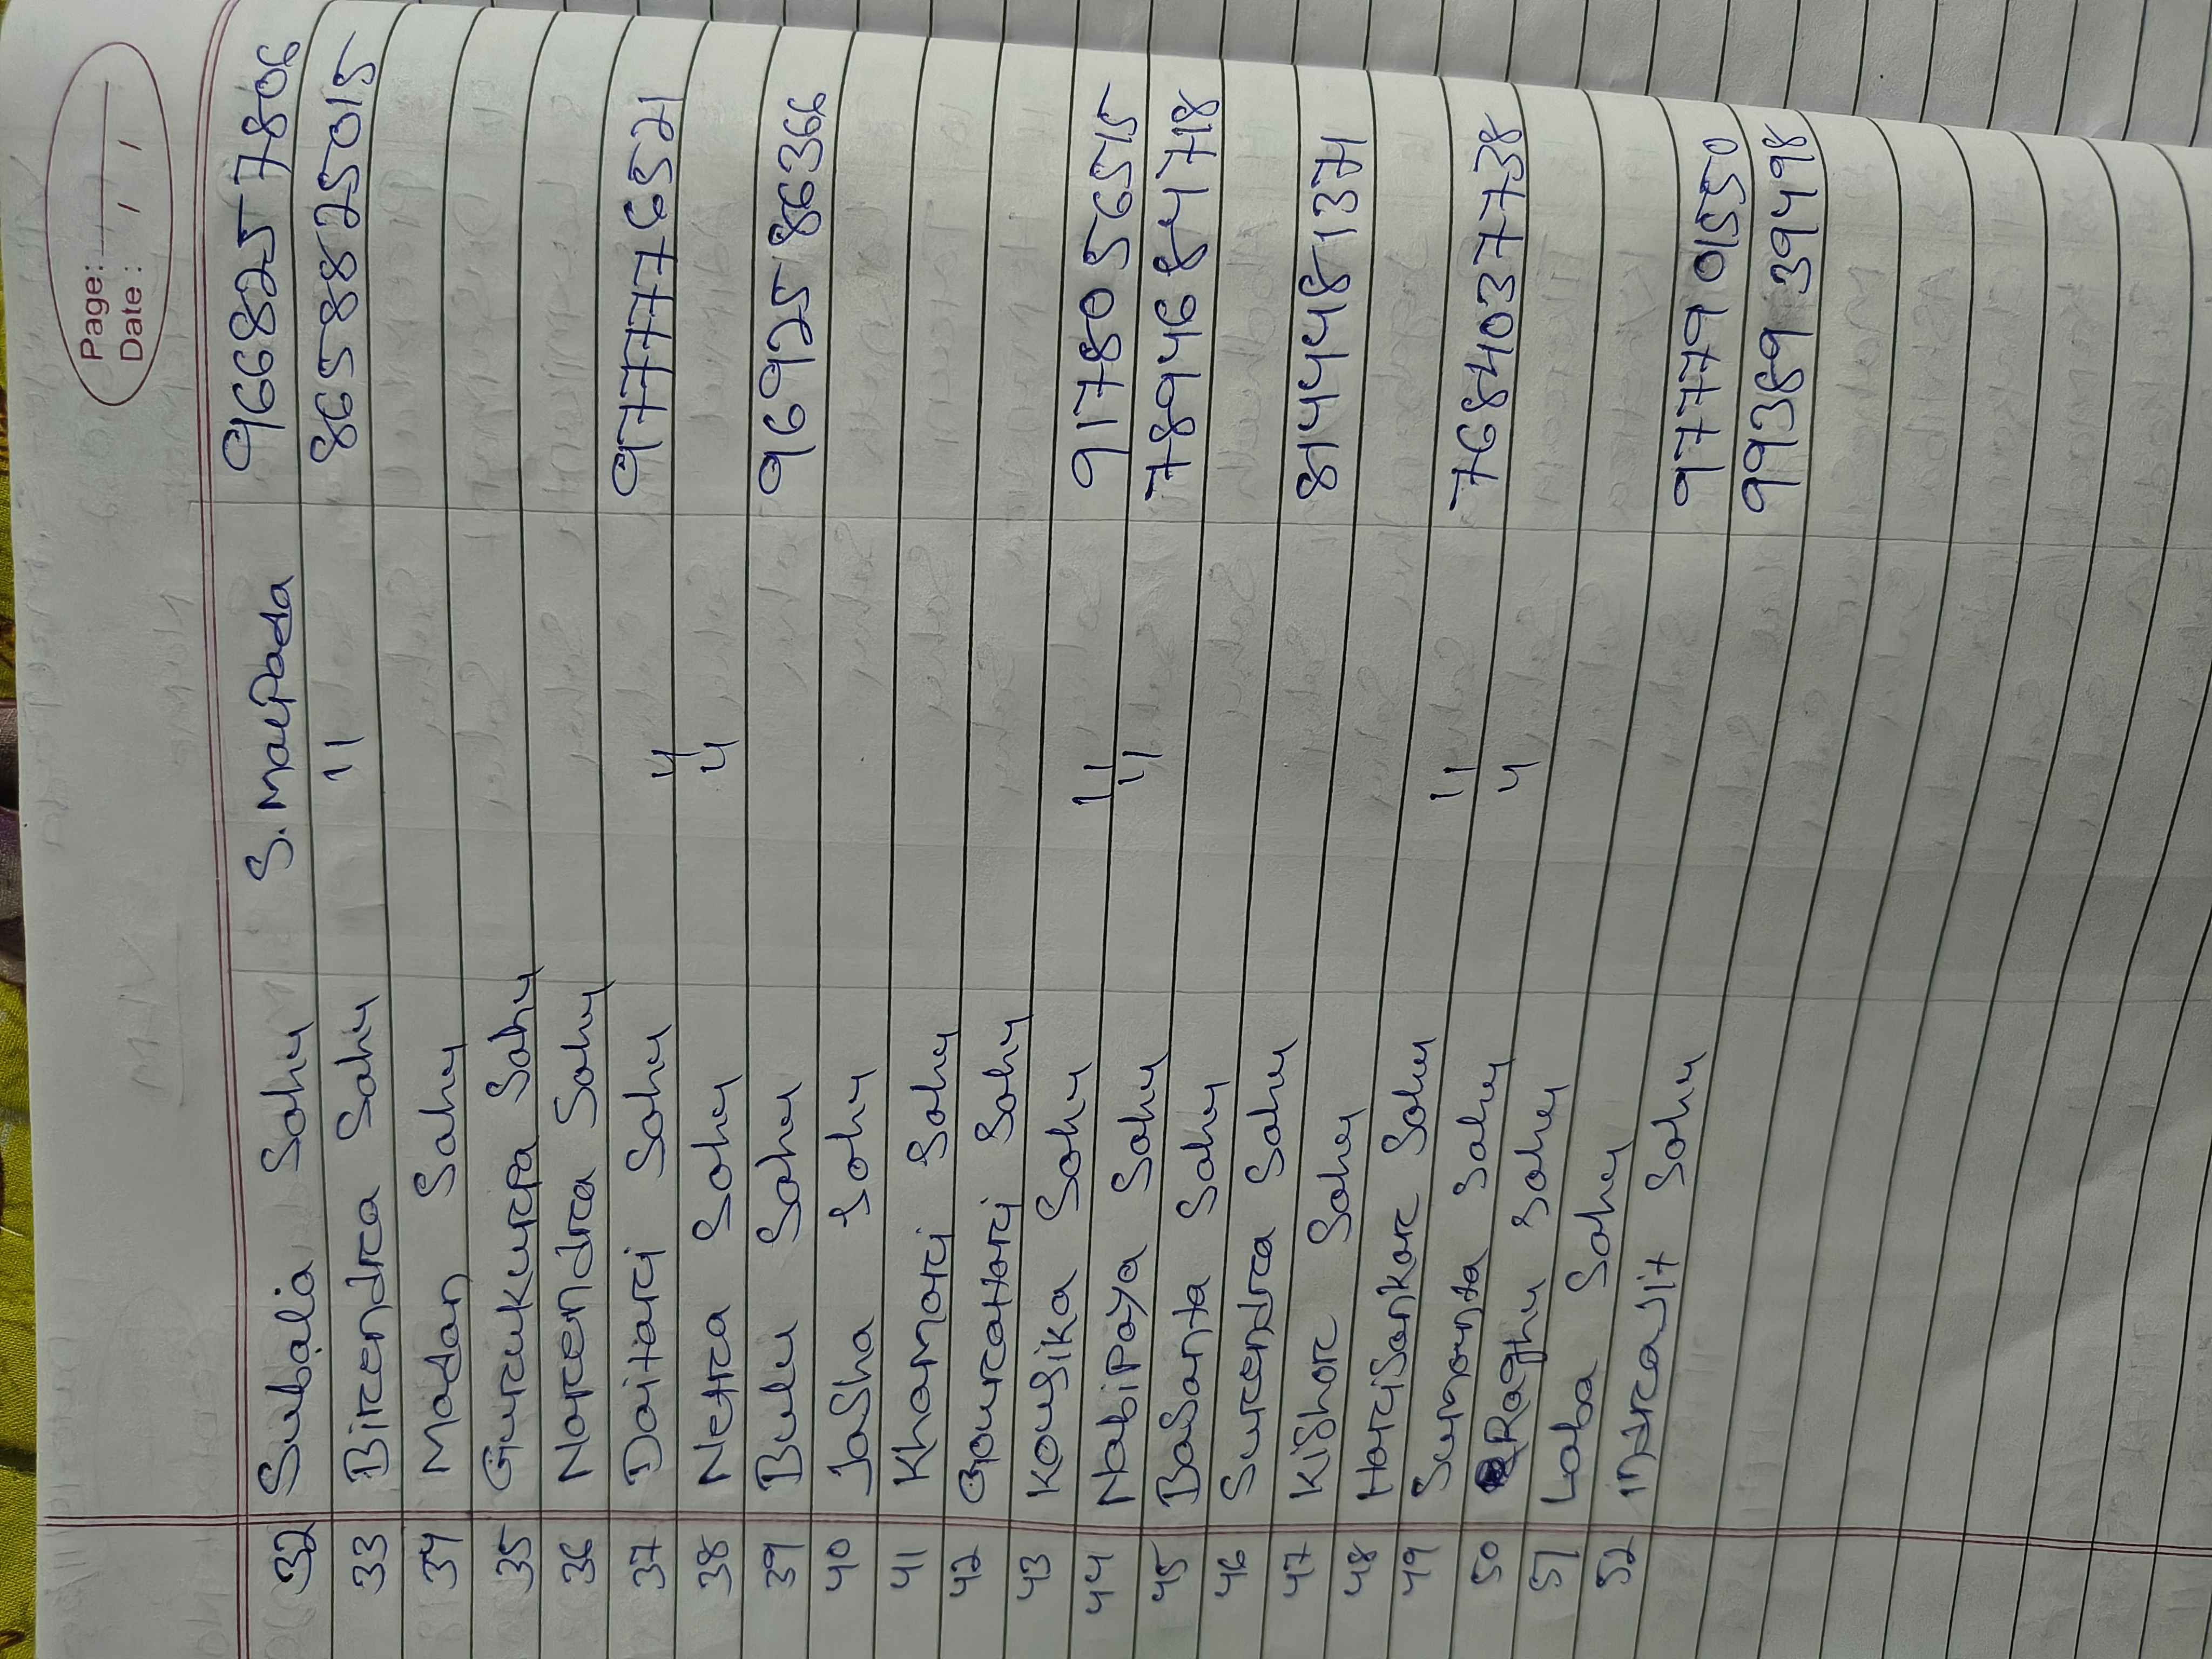 Page:
Date: / /
32 Subalia Sahu S. Malpada 9668257806
33 Birendra Sahu 11 8658825015
34 Madan Sahu
35 Gurukurpa Sahu
36 Narendra Sahu
37 Daitari Sahu 4 9777776521
38 Netra Sahu 4
39 Bulu Sahu 9692586366
40 Jasha Sahu
41 Khamari Sahu
42 Gourahari Sahu
43 Kousika Sahu 11 9178056515
44 Nabipaya Sahu 11 7894684718
45 Basanta Sahu
46 Surendra Sahu 8144481371
47 Kishor Sahu
48 Harisankar Sahu 11 7684037738
49 Sumanta Sahu 4
50 Raghu Sahu
51 Laba Sahu 9777901550
52 Indrajit Sahu 9938939498